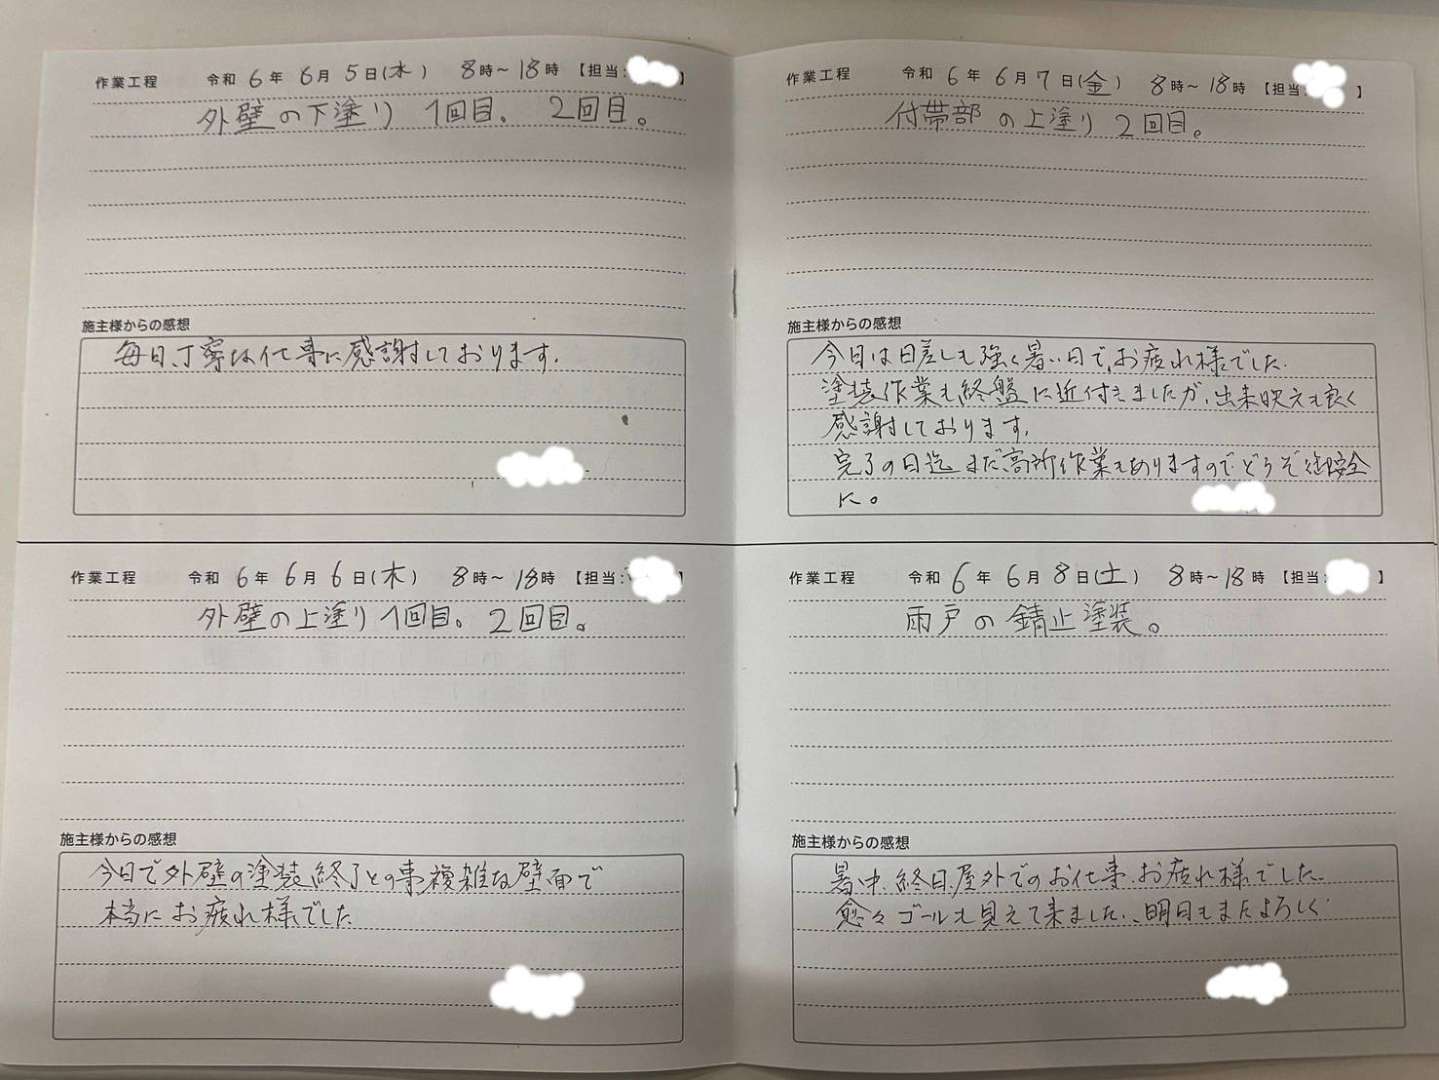 作業工程 令和 6年 6月 5日(水) 8時～18時 【担当: 】
外壁の下塗り 1回目。 2回目。
施主様からの感想
毎日、丁寧な仕事に感謝しております.
作業工程 令和 6年 6月 6日(木) 8時～18時 【担当: 】
外壁の上塗り 1回目。 2回目。
施主様からの感想
今日で外壁の塗装終了との事複雑な壁面で
本当にお疲れ様でした
作業工程 令和 6年 6月 7日(金) 8時～18時 【担当: 】
付帯部の上塗り 2回目。
施主様からの感想
今日は日差しも強く暑い日で、お疲れ様でした.
塗装作業も終盤に近付きましたが、出来映えも良く
感謝しております.
完了の日迄まだ高所作業もありますのでどうぞ御安全
に。
作業工程 令和 6年 6月 8日(土) 8時～18時 【担当: 】
雨戸の錆止塗装。
施主様からの感想
暑中、終日、屋外でのお仕事、お疲れ様でした.
愈々ゴールも見えて来ました、明日もまたよろしく